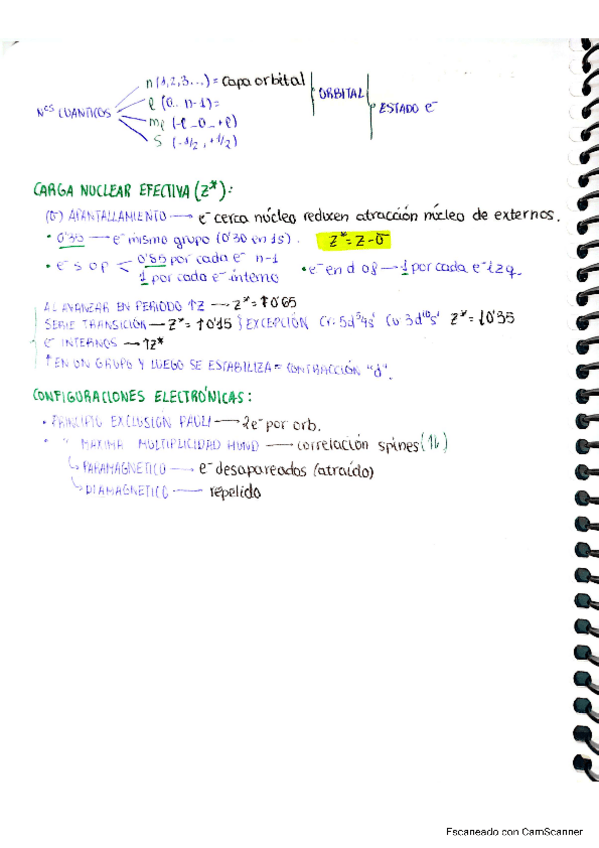 n (1,2,3...) = capa orbital
Nos CUÁNTICOS
l (0.. n-1)=
ml (-l _0_ +l)
S (-1/2, +1/2)
ORBITAL
ESTADO e-
CARGA NUCLEAR EFECTIVA (Z*):
(σ) APANTALLAMIENTO → e- cerca núcleo reducen atracción núcleo de externos.
• 0'35 → e- mismo grupo (0'30 en 1s). Z* = Z-σ
• e- s o p < 0'85 por cada e- n-1
1 por cada e- interno
• e- en d o f → 1 por cada e- izq.
AL AVANZAR EN PERIODO ↑Z → Z* = ↑0'65
SERIE TRANSICIÓN → Z* = ↑0'15 } EXCEPCIÓN Cr: 5d5 4s1 Cu 3d10 s1 Z* = ↓0'35
e- INTERNOS → ↑Z*
↑ EN UN GRUPO Y LUEGO SE ESTABILIZA = CONTRACCIÓN "d".
CONFIGURACIONES ELECTRÓNICAS:
• PRINCIPIO EXCLUSIÓN PAULI → 2e- por orb.
• " MÁXIMA MULTIPLICIDAD HUND → correlación spines (1L)
↳ PARAMAGNÉTICO → e- desapareados (atraído)
↳ DIAMAGNÉTICO → repelido
Escaneado con CamScanner